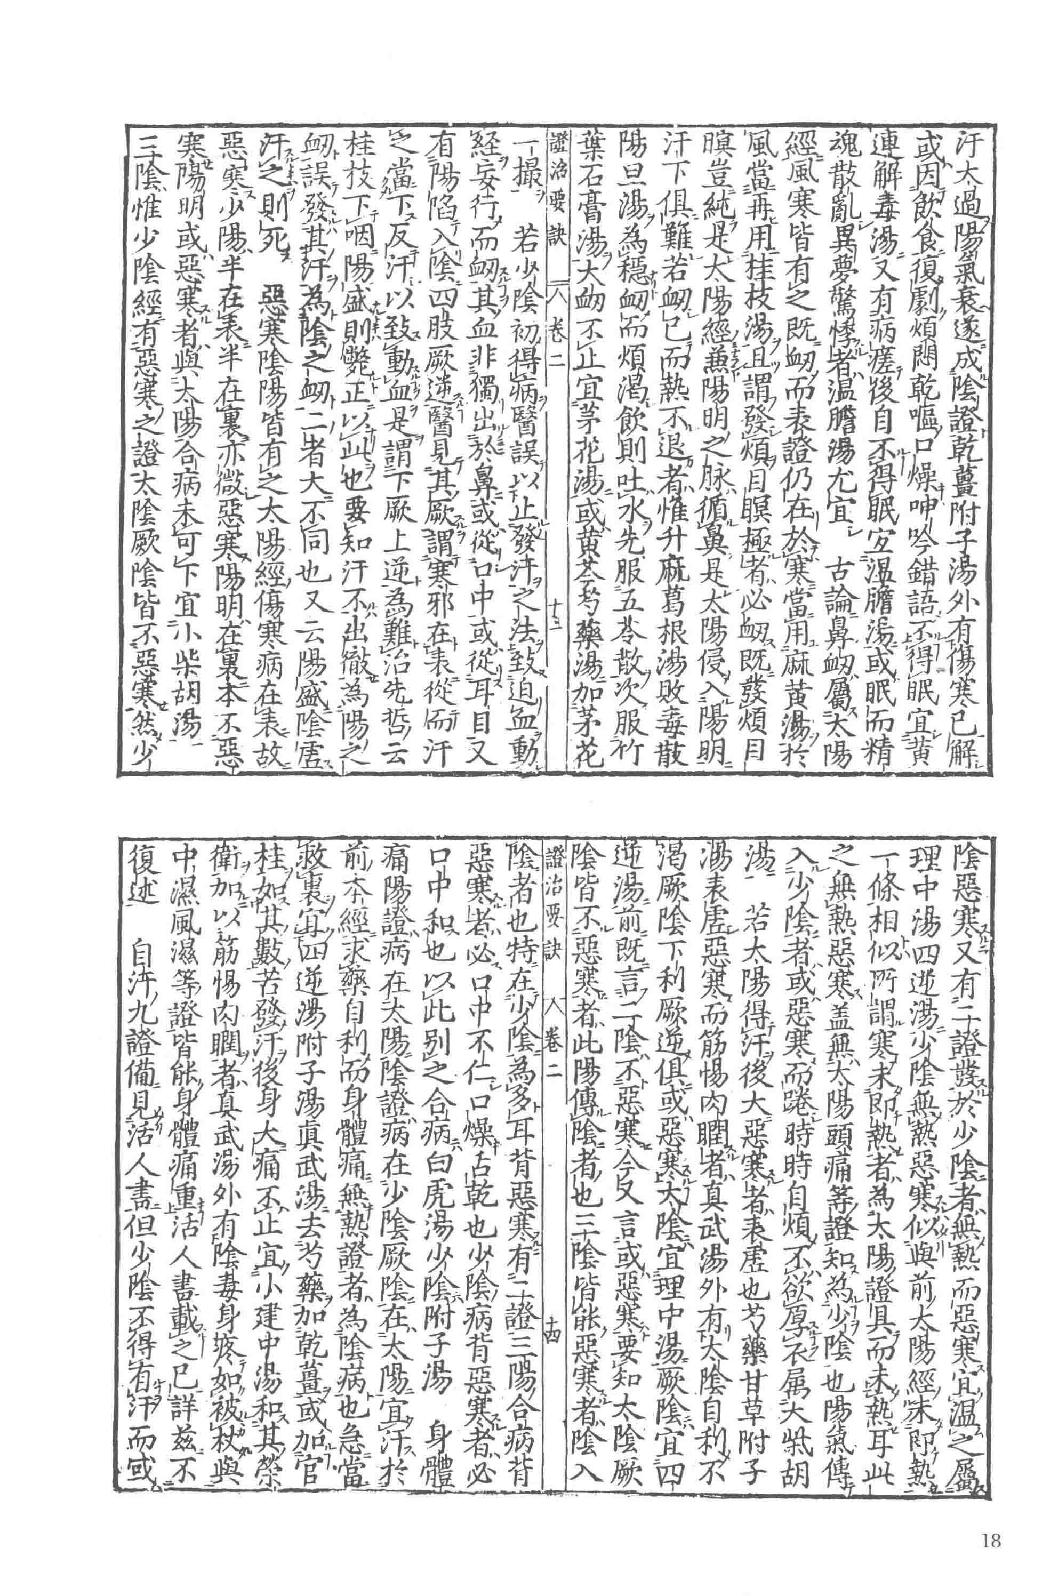 汗太過陽氣衰遂成陰證乾薑附子湯外有傷寒已解
或因飲食復劇煩悶乾嘔口燥呻吟錯語不得眠宜黃
連解毒湯又有病瘥後自不得眠宜溫膽湯或眠而精
魂散亂異夢驚悸者溫膽湯尤宜　古論鼻衂屬太陽
經風寒皆有之既衂而表證仍在於寒當用麻黃湯於
風當再用桂枝湯且謂發煩目瞑極者必衂既發煩目
瞑豈純是太陽經兼陽明之脉循鼻是太陽侵入陽明
汗下俱難若衂已而熱不退者惟升麻葛根湯敗毒散
陽旦湯為穩衂而煩渴飲則吐水先服五苓散次服竹
葉石膏湯大衂不止宜茅花湯或黃芩芍藥湯加茅花
證治要訣　八卷二　十三
一撮　若少陰初得病醫誤以止發汗之法致迫血動
経妄行而衂其血非獨出於鼻或從口中或從耳目又
有陽陷入陰四肢厥逆醫見其厥謂寒邪在表從而汗
之當下反汗以致動血是謂下厥上逆為難治先哲云
桂枝下咽陽盛則斃正以此也要知汗不出徹為陽之
衂誤發其汗為陰之衂二者大不同也又云陽盛陰虛
汗之則死　惡寒陰陽皆有之太陽經傷寒病在表故
惡寒少陽半在表半在裏亦微惡寒陽明在裏本不惡
寒陽明或惡寒者與太陽合病未可下宜小柴胡湯
三陰惟少陰經有惡寒之證太陰厥陰皆不惡寒然少
陰惡寒又有二證發於少陰者無熱而惡寒宜溫之屬
理中湯四逆湯少陰無熱惡寒似與前太陽經未即熱
一條相似所謂寒未即熱者為太陽證具而未熱耳此
之無熱惡寒盖無太陽頭痛等證知為少陰也陽氣傳
入少陰者或惡寒而踡時時自煩不欲厚衣屬大柴胡
湯　若太陽得汗後大惡寒者表虛也芍藥甘草附子
湯表虛惡寒而筋惕肉瞤者真武湯外有太陰自利不
渴厥陰下利厥逆俱或惡寒太陰宜理中湯厥陰宜四
逆湯前既言二陰不惡寒今又言或惡寒要知太陰厥
陰皆不惡寒者此陽傳陰者也三陰皆能惡寒者陰入
證治要訣　八卷二　十四
陰者也特在少陰為多耳背惡寒有二證三陽合病背
惡寒者必口中不仁口燥舌乾也少陰病背惡寒者必
口中和也以此別之合病白虎湯少陰附子湯　身體
痛陽證病在太陽陰證病在少陰厥陰在太陽宜汗於
前本經求藥自利而身體痛無熱證者為陰病也急當
救裏宜四逆湯附子湯真武湯去芍藥加乾薑或加官
桂如其數若發汗後身大痛不止宜小建中湯和其榮
衛加以筋惕肉瞤者真武湯外有陰毒身疼如被杖與
中濕風濕等證皆能身體痛重活人書載之已詳茲不
復述　自汗九證備見活人書但少陰不得有汗而或
18